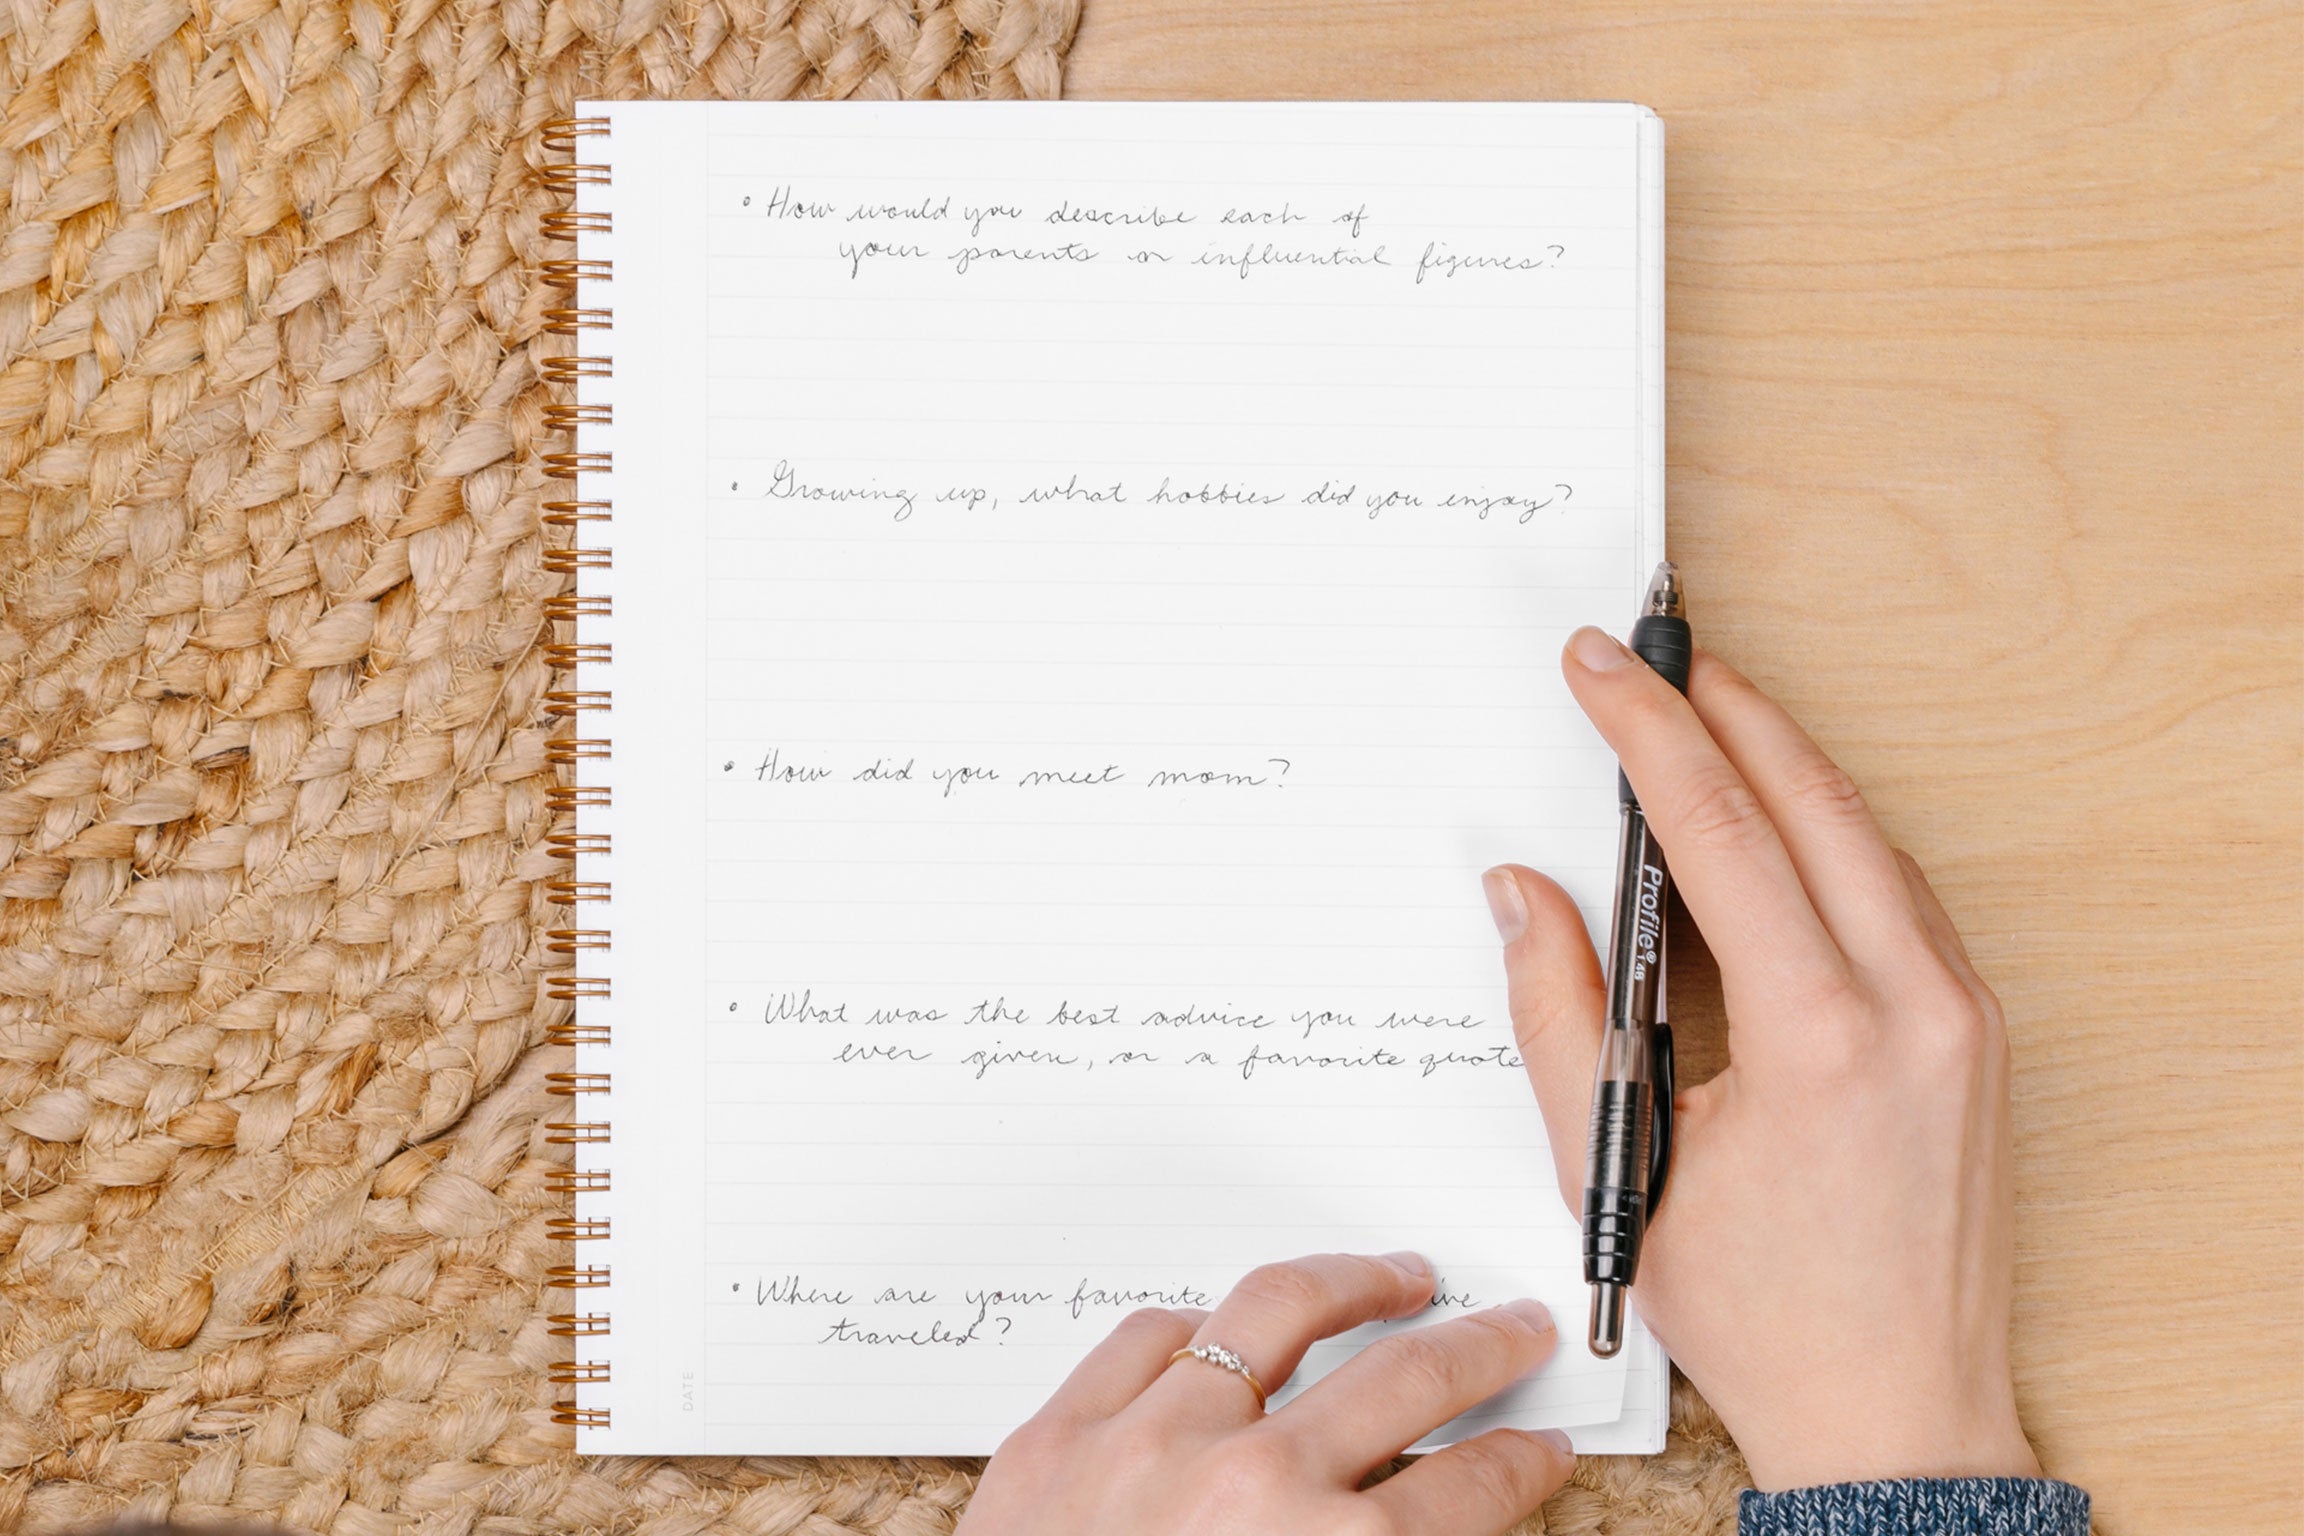 • How would you describe each of
your parents or influential figures?
• Growing up, what hobbies did you enjoy?
• How did you meet mom?
• What was the best advice you were
ever given, or a favorite quote
• Where are your favorite
traveled?
DATE
Profile® 1.4B